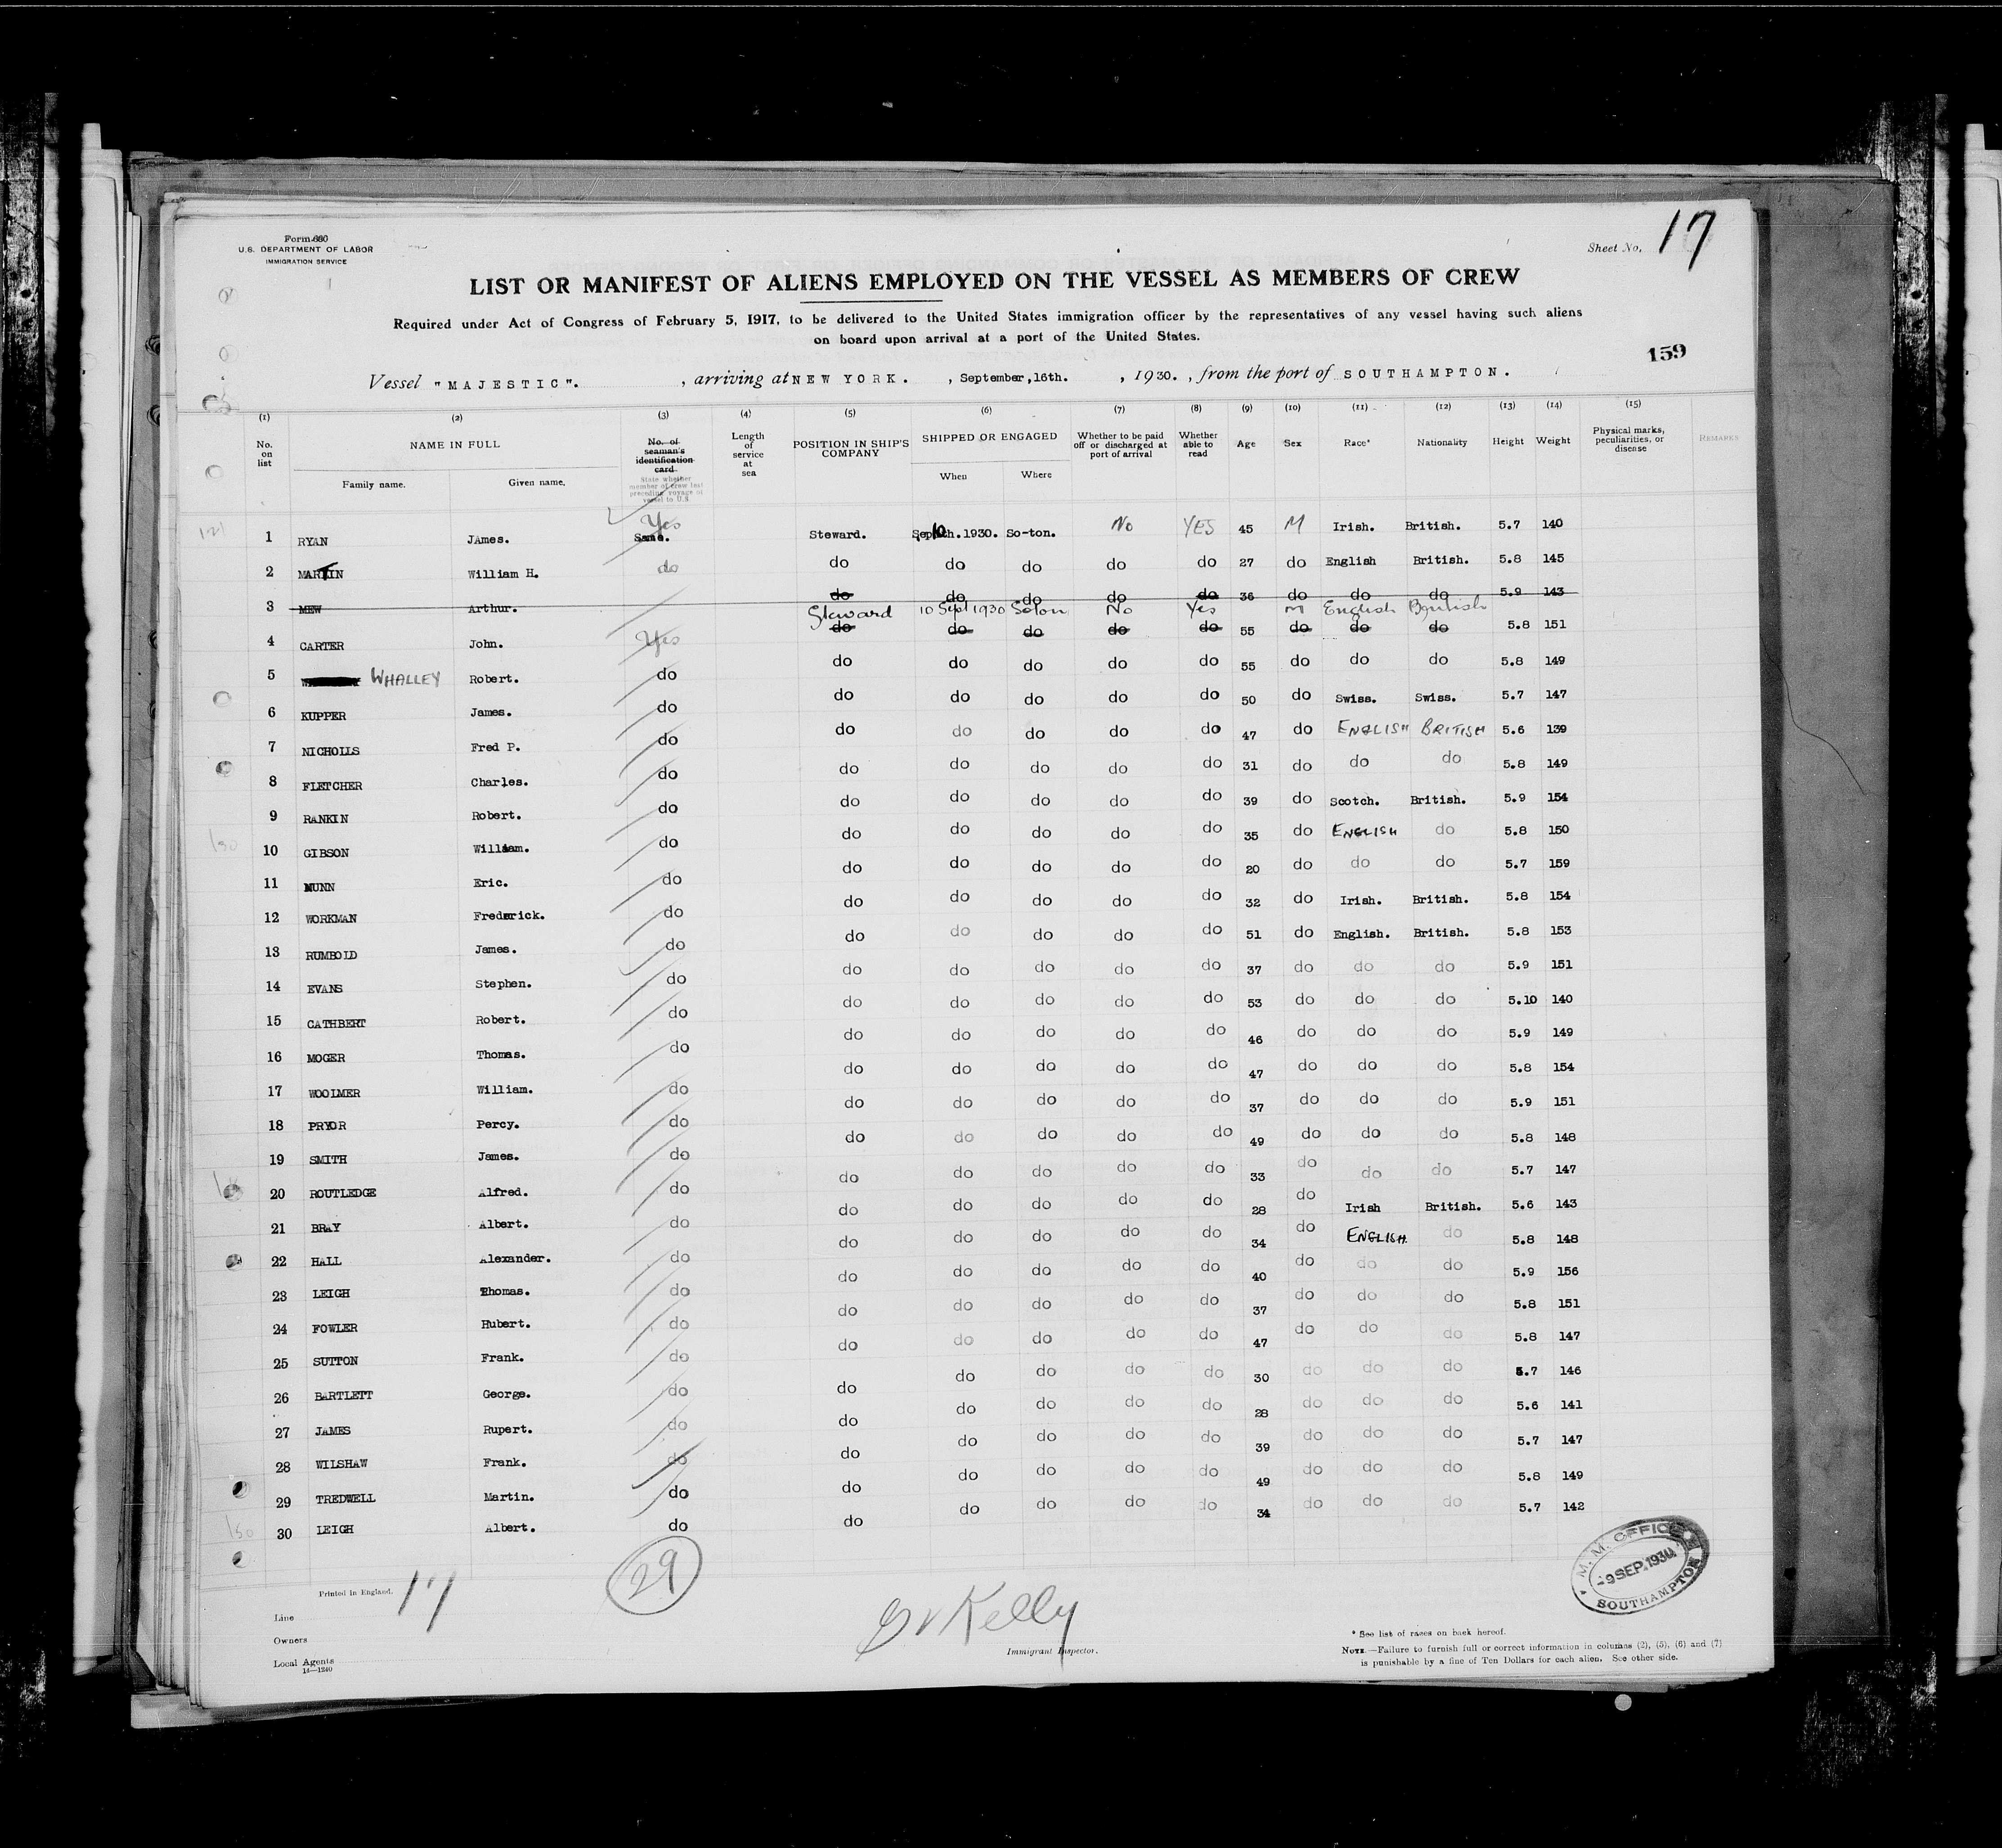 Form 680
U.S. DEPARTMENT OF LABOR
IMMIGRATION SERVICE
Sheet No. 17
LIST OR MANIFEST OF ALIENS EMPLOYED ON THE VESSEL AS MEMBERS OF CREW
Required under Act of Congress of February 5, 1917, to be delivered to the United States immigration officer by the representatives of any vessel having such aliens
on board upon arrival at a port of the United States.
159
Vessel "MAJESTIC". , arriving at NEW YORK. , September,16th. , 1930. , from the port of SOUTHAMPTON.
(1) (2) (3) (4) (5) (6) (7) (8) (9) (10) (11) (12) (13) (14) (15)
No. on list NAME IN FULL Family name. Given name. No. of seaman's identification card State whether member of crew last preceding voyage of vessel to U.S. Length of service at sea POSITION IN SHIP'S COMPANY SHIPPED OR ENGAGED When Where Whether to be paid off or discharged at port of arrival Whether able to read Age Sex Race* Nationality Height Weight Physical marks, peculiarities, or disease REMARKS
1 RYAN James. Yes Same. Steward. Sep 10th. 1930. So-ton. No YES 45 M Irish. British. 5.7 140
2 MARTIN William H. do do do do do do 27 do English British. 5.8 145
3 MEW Arthur. do do do do do 36 do do do 5.9 143
Steward 10 Sept 1930 Soton No Yes M English British
4 CARTER John. Yes do do do do do 55 do do do 5.8 151
5 WHALLEY Robert. do do do do do do 55 do do do 5.8 149
6 KUPPER James. do do do do do do 50 do Swiss. Swiss. 5.7 147
7 NICHOLLS Fred P. do do do do do do 47 do ENGLISH BRITISH 5.6 139
8 FLETCHER Charles. do do do do do do 31 do do do 5.8 149
9 RANKIN Robert. do do do do do do 39 do Scotch. British. 5.9 154
10 GIBSON William. do do do do do do 35 do ENGLISH do 5.8 150
11 NUNN Eric. do do do do do do 20 do do do 5.7 159
12 WORKMAN Frederick. do do do do do do 32 do Irish. British. 5.8 154
13 RUMBOLD James. do do do do do do 51 do English. British. 5.8 153
14 EVANS Stephen. do do do do do do 37 do do do 5.9 151
15 CATHBERT Robert. do do do do do do 53 do do do 5.10 140
16 MOGER Thomas. do do do do do do 46 do do do 5.9 149
17 WOOLMER William. do do do do do do 47 do do do 5.8 154
18 PRYOR Percy. do do do do do do 37 do do do 5.9 151
19 SMITH James. do do do do do do 49 do do do 5.8 148
20 ROUTLEDGE Alfred. do do do do do do 33 do do do 5.7 147
21 BRAY Albert. do do do do do do 28 do Irish British. 5.6 143
22 HALL Alexander. do do do do do do 34 do ENGLISH. do 5.8 148
23 LEIGH Thomas. do do do do do do 40 do do do 5.9 156
24 FOWLER Hubert. do do do do do do 37 do do do 5.8 151
25 SUTTON Frank. do do do do do do 47 do do do 5.8 147
26 BARTLETT George. do do do do do do 30 do do do 5.7 146
27 JAMES Rupert. do do do do do do 28 do do do 5.6 141
28 WILSHAW Frank. do do do do do do 39 do do do 5.7 147
29 TREDWELL Martin. do do do do do do 49 do do do 5.8 149
30 LEIGH Albert. do do do do do do 34 do do do 5.7 142
Printed in England. 17
29
Line
Owners
Local Agents
14—1240
Kelly
Immigrant Inspector.
M. M. OFFICE
9 SEP. 1930
SOUTHAMPTON
* See list of races on back hereof.
NOTE.—Failure to furnish full or correct information in columns (2), (5), (6) and (7)
is punishable by a fine of Ten Dollars for each alien. See other side.